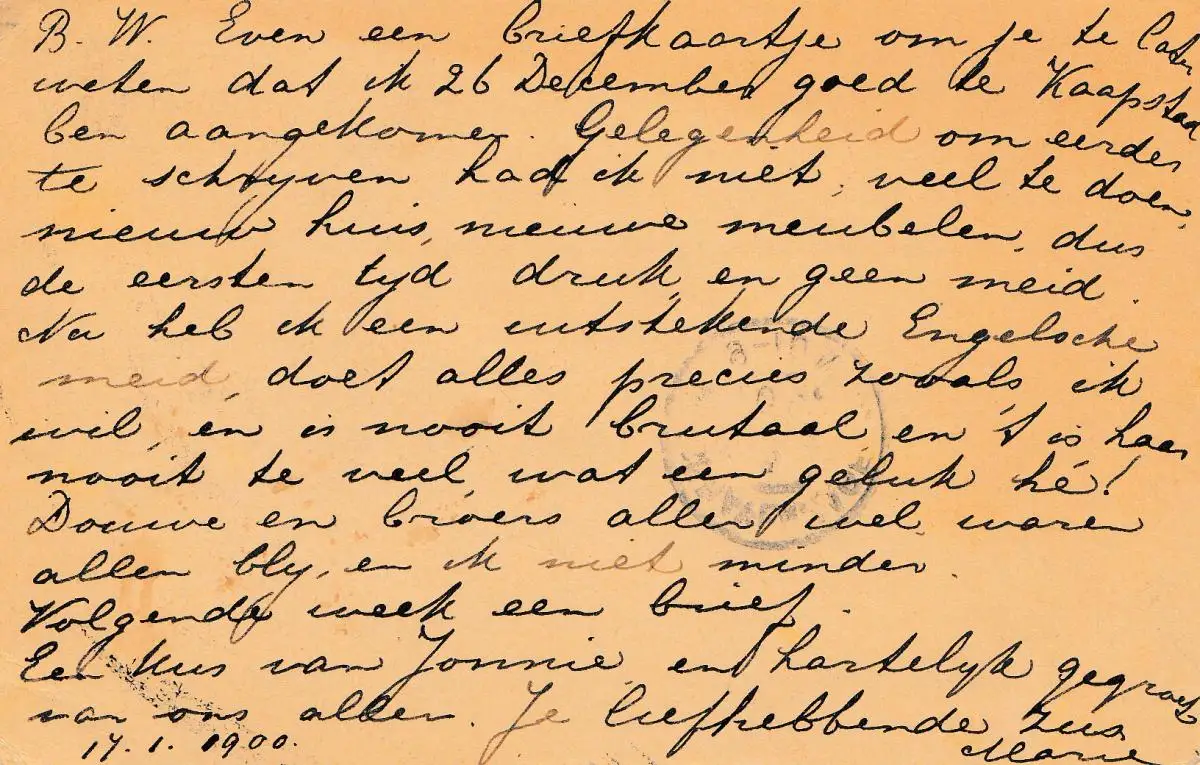 B. W. Even een briefkaartje om je te laten
weten dat ik 26 December goed te Kaapstad
ben aangekomen. Gelegenheid om eerder
te schryven had ik niet, veel te doen,
nieuw huis, nieuwe meubelen, dus
de eersten tyd druk en geen meid.
Nu heb ik een uitstekende Engelsche
meid, doet alles precies zooals ik
wil, en is nooit brutaal en 't is haar
nooit te veel, wat een geluk hé!
Douwe en broers allen wel, waren
allen bly, en ik niet minder.
Volgende week een brief.
Een kus van Jonnie, en hartelyk gegroet
van ons allen. Je liefhebbende zus
17.1.1900. Marie